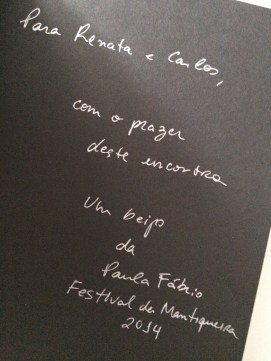 Para Renata e Carlos,
com o prazer
deste encontro
Um beijo
da
Paula Fábrio
Festival da Mantiqueira
2014